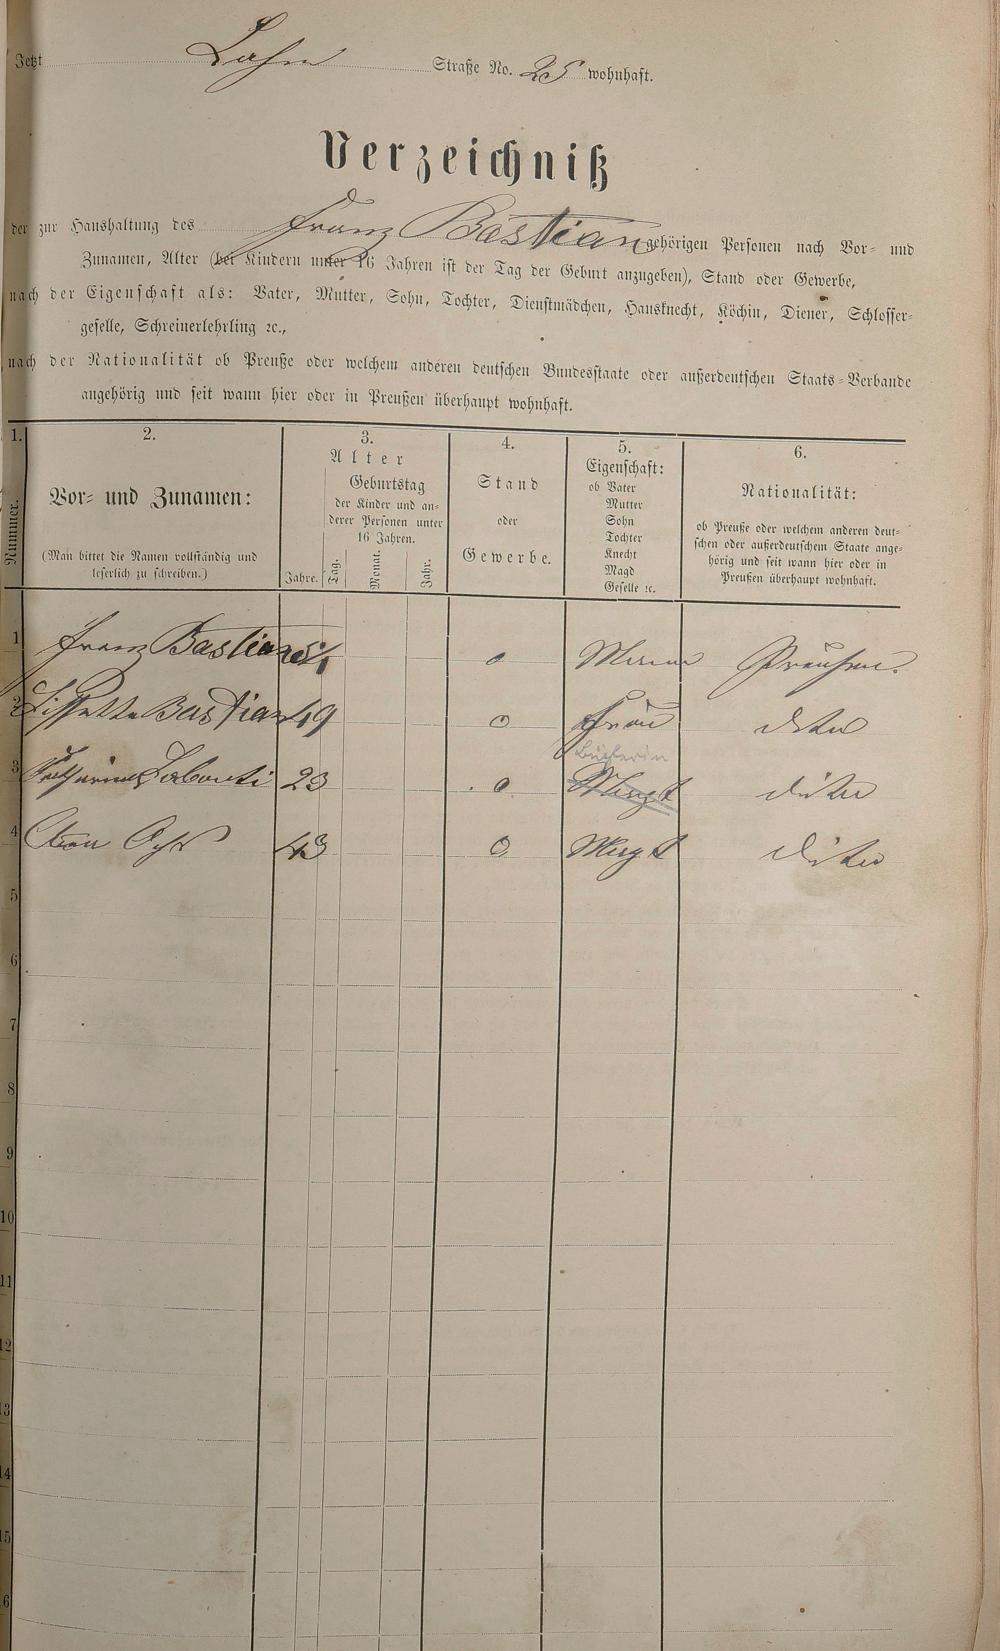 Jetzt Lahn Straße No. 25 wohnhaft.
Verzeichniß
der zur Haushaltung des Franz Bastian gehörigen Personen nach Vor- und
Zunamen, Alter (bei Kindern unter 16 Jahren ist der Tag der Geburt anzugeben), Stand oder Gewerbe,
nach der Eigenschaft als: Vater, Mutter, Sohn, Tochter, Dienstmädchen, Hausknecht, Köchin, Diener, Schlosser-
geselle, Schreinerlehrling ꝛc.,
nach der Nationalität ob Preuße oder welchem anderen deutschen Bundesstaate oder außerdeutschen Staats-Verbande
angehörig und seit wann hier oder in Preußen überhaupt wohnhaft.
1. 2. 3. 4. 5. 6.
Nummer.
Vor- und Zunamen:
(Man bittet die Namen vollständig und
leserlich zu schreiben.)
Alter
Geburtstag
der Kinder und an-
derer Personen unter
16 Jahren.
Jahre. Tag. Monat. Jahr.
Stand
oder
Gewerbe.
Eigenschaft:
ob Vater
Mutter
Sohn
Tochter
Knecht
Magd
Geselle ꝛc.
Nationalität:
ob Preuße oder welchem anderen deut-
schen oder außerdeutschem Staate ange-
hörig und seit wann hier oder in
Preußen überhaupt wohnhaft.
1 Franz Bastian 54 o Mann Preußen.
2 Lissette Bastian 49 o Frau dito
Büglerin
3 Katharina 23 o Magt dito
4 43 o Magt dito
5
6
7
8
9
10
11
12
13
14
15
6